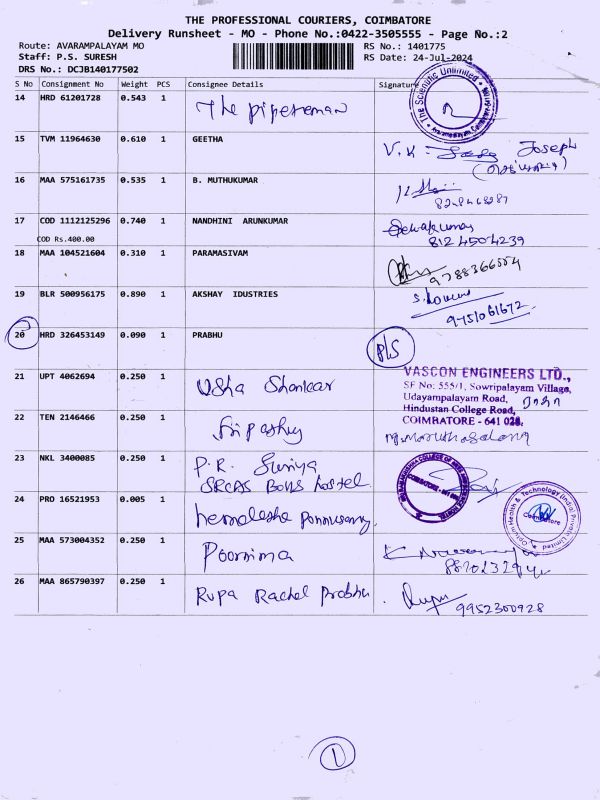 THE PROFESSIONAL COURIERS, COIMBATORE
Delivery Runsheet - MO - Phone No.:0422-3505555 - Page No.:2
Route: AVARAMPALAYAM MO
RS No.: 1401775
Staff: P.S. SURESH
RS Date: 24-Jul-2024
DRS No.: DCJB140177502
S No Consignment No Weight PCS Consignee Details Signature
14 HRD 61201728 0.543 1 The pipetman
The Scientific Unlimited
15 TVM 11964630 0.610 1 GEETHA
V.K. Joseph
16 MAA 575161735 0.535 1 B. MUTHUKUMAR
17 COD 1112125296 0.740 1 NANDHINI ARUNKUMAR
COD Rs.400.00
8124504239
18 MAA 104521604 0.310 1 PARAMASIVAM
9788366554
19 BLR 500956175 0.890 1 AKSHAY IDUSTRIES
9751061672
20 HRD 326453149 0.090 1 PRABHU
P/S
21 UPT 4062694 0.250 1 Usha Shankar
VASCON ENGINEERS LTD.,
SF No: 555/1, Sowripalayam Village,
Udayampalayam Road,
Hindustan College Road,
COIMBATORE - 641 028.
22 TEN 2146466 0.250 1
23 NKL 3400085 0.250 1 P.R. Suriya
SRCAS Boys hostel.
24 PRO 16521953 0.005 1
Optum Health & Technology (India) Private Limited
Coimbatore
25 MAA 573004352 0.250 1 Poornima
26 MAA 865790397 0.250 1 Rupa Rachel Prabhu
9952300928
1